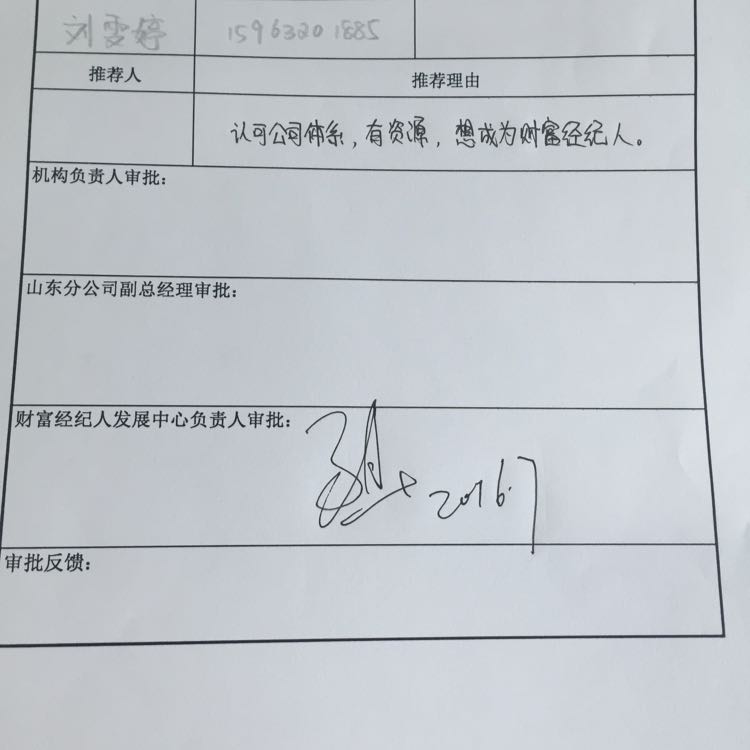 刘雯婷 15963201885
推荐人 推荐理由
认可公司体系，有资源，想成为财富经纪人。
机构负责人审批：
山东分公司副总经理审批：
财富经纪人发展中心负责人审批：
2016.7
审批反馈：